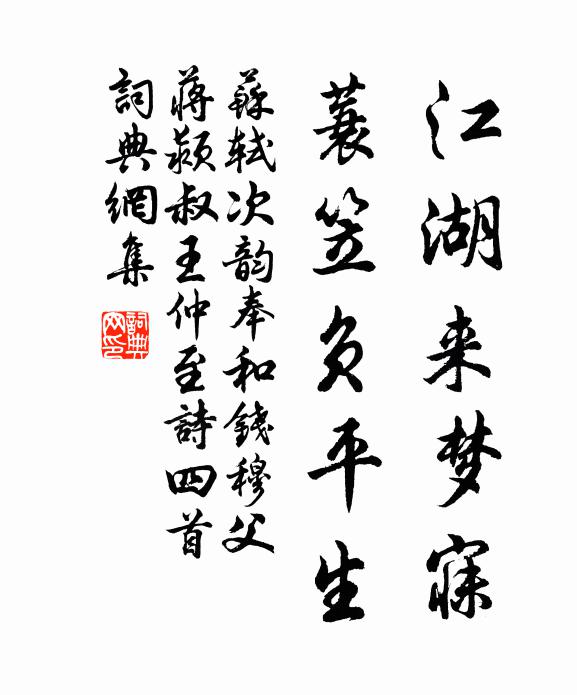 江湖来梦寐
蓑笠负平生
蘇軾次韵奉和錢穆父
蔣颍叔王仲至詩四首
詞典網集
詞典网印